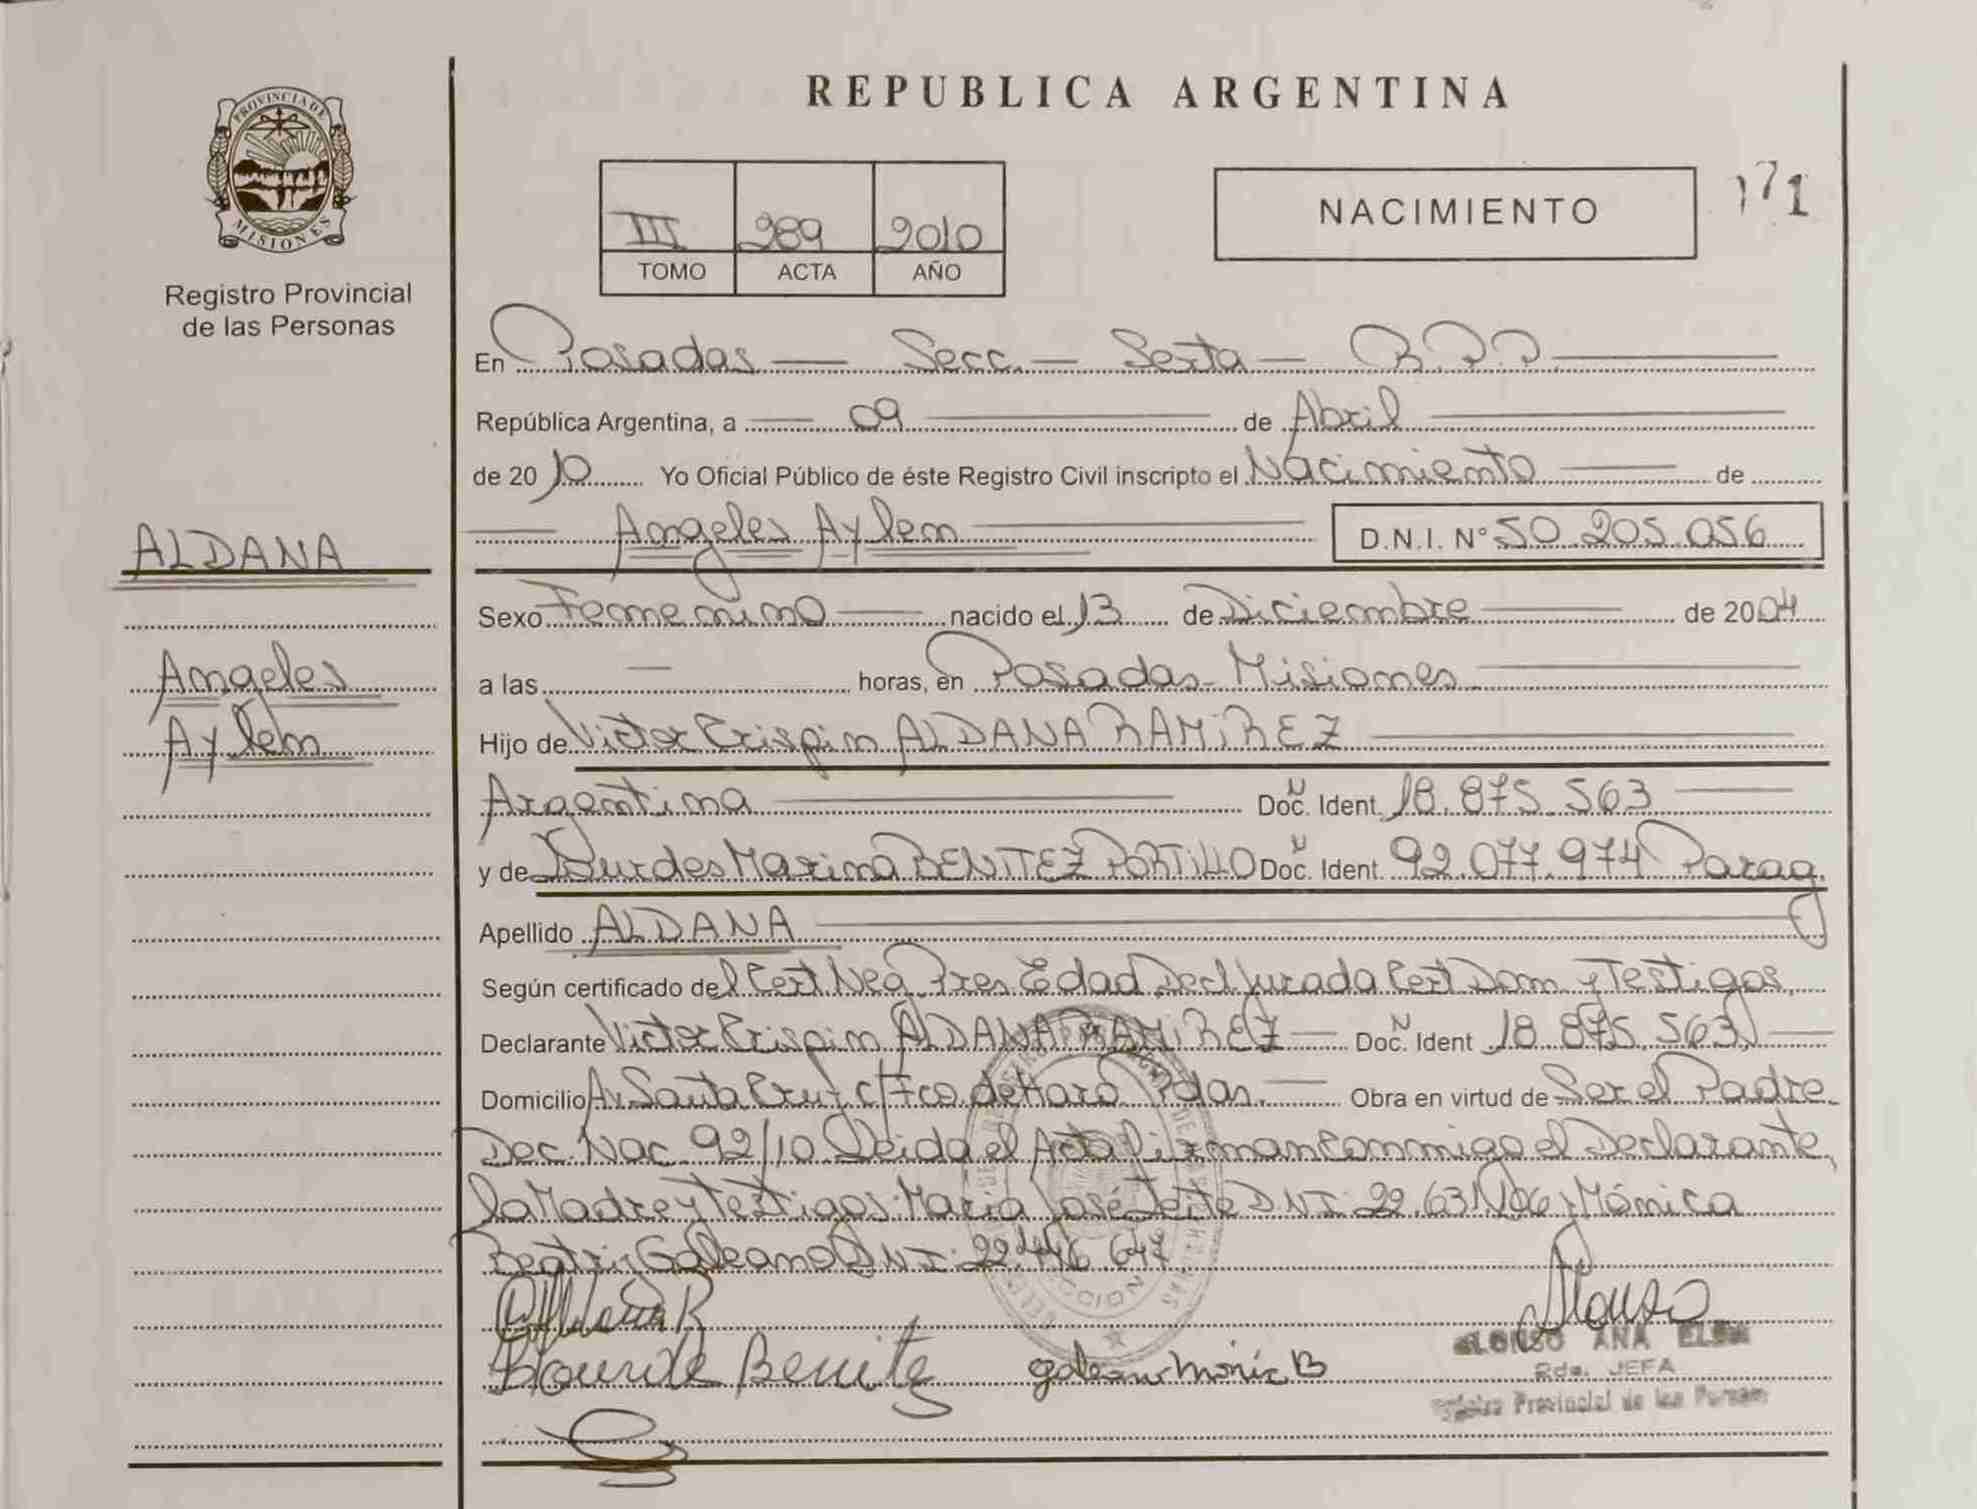 PROVINCIA DE
MISIONES
Registro Provincial
de las Personas
ALDANA
Angeles
Aylem
REPUBLICA ARGENTINA
III 289 2010
TOMO ACTA AÑO
NACIMIENTO
171
En Posadas — Secc. — Sexta — R.P.P.
República Argentina, a — 09 — de Abril
de 2010 Yo Oficial Público de éste Registro Civil inscripto el Nacimiento — de
Angeles Aylem D.N.I. N° 50.205.056
Sexo Femenino — nacido el 13 de Diciembre — de 2004
a las — horas, en Posadas - Misiones
Hijo de Victor Crispim ALDANA RAMIREZ
Argentina — Doc. Ident. 18.875.563
y de Lourdes Marina BENITEZ PORTILLO Doc. Ident. 92.077.974 Parag.
Apellido ALDANA
Según certificado del Cert. Neg. Pres. Edad Decl Jurada Cert Dom y Testigos.
Declarante Victor Crispim ALDANA RAMIREZ — Doc. Ident 18.875.563
Domicilio Av Santa Cruz c/ Fco. de Haro Pdas. — Obra en virtud de Ser el Padre.
Dec. Nac. 92/10 Leida el Acta firman conmigo el Declarante,
la Madre y Testigos: Maria José DNI: 22.631.106 y Mónica
Beatriz Galeano DNI: 22.446.647
Alonso
Lourde Benitez galeano Monic B
ALONSO ANA ELSA
JEFA
Registro Provincial de las Personas